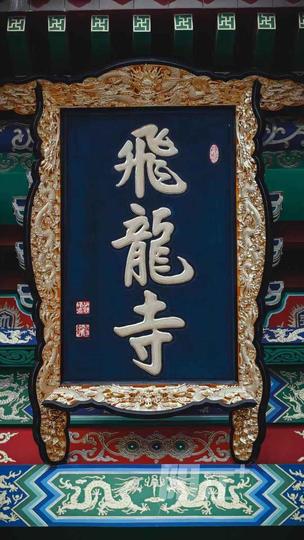 飛龍寺